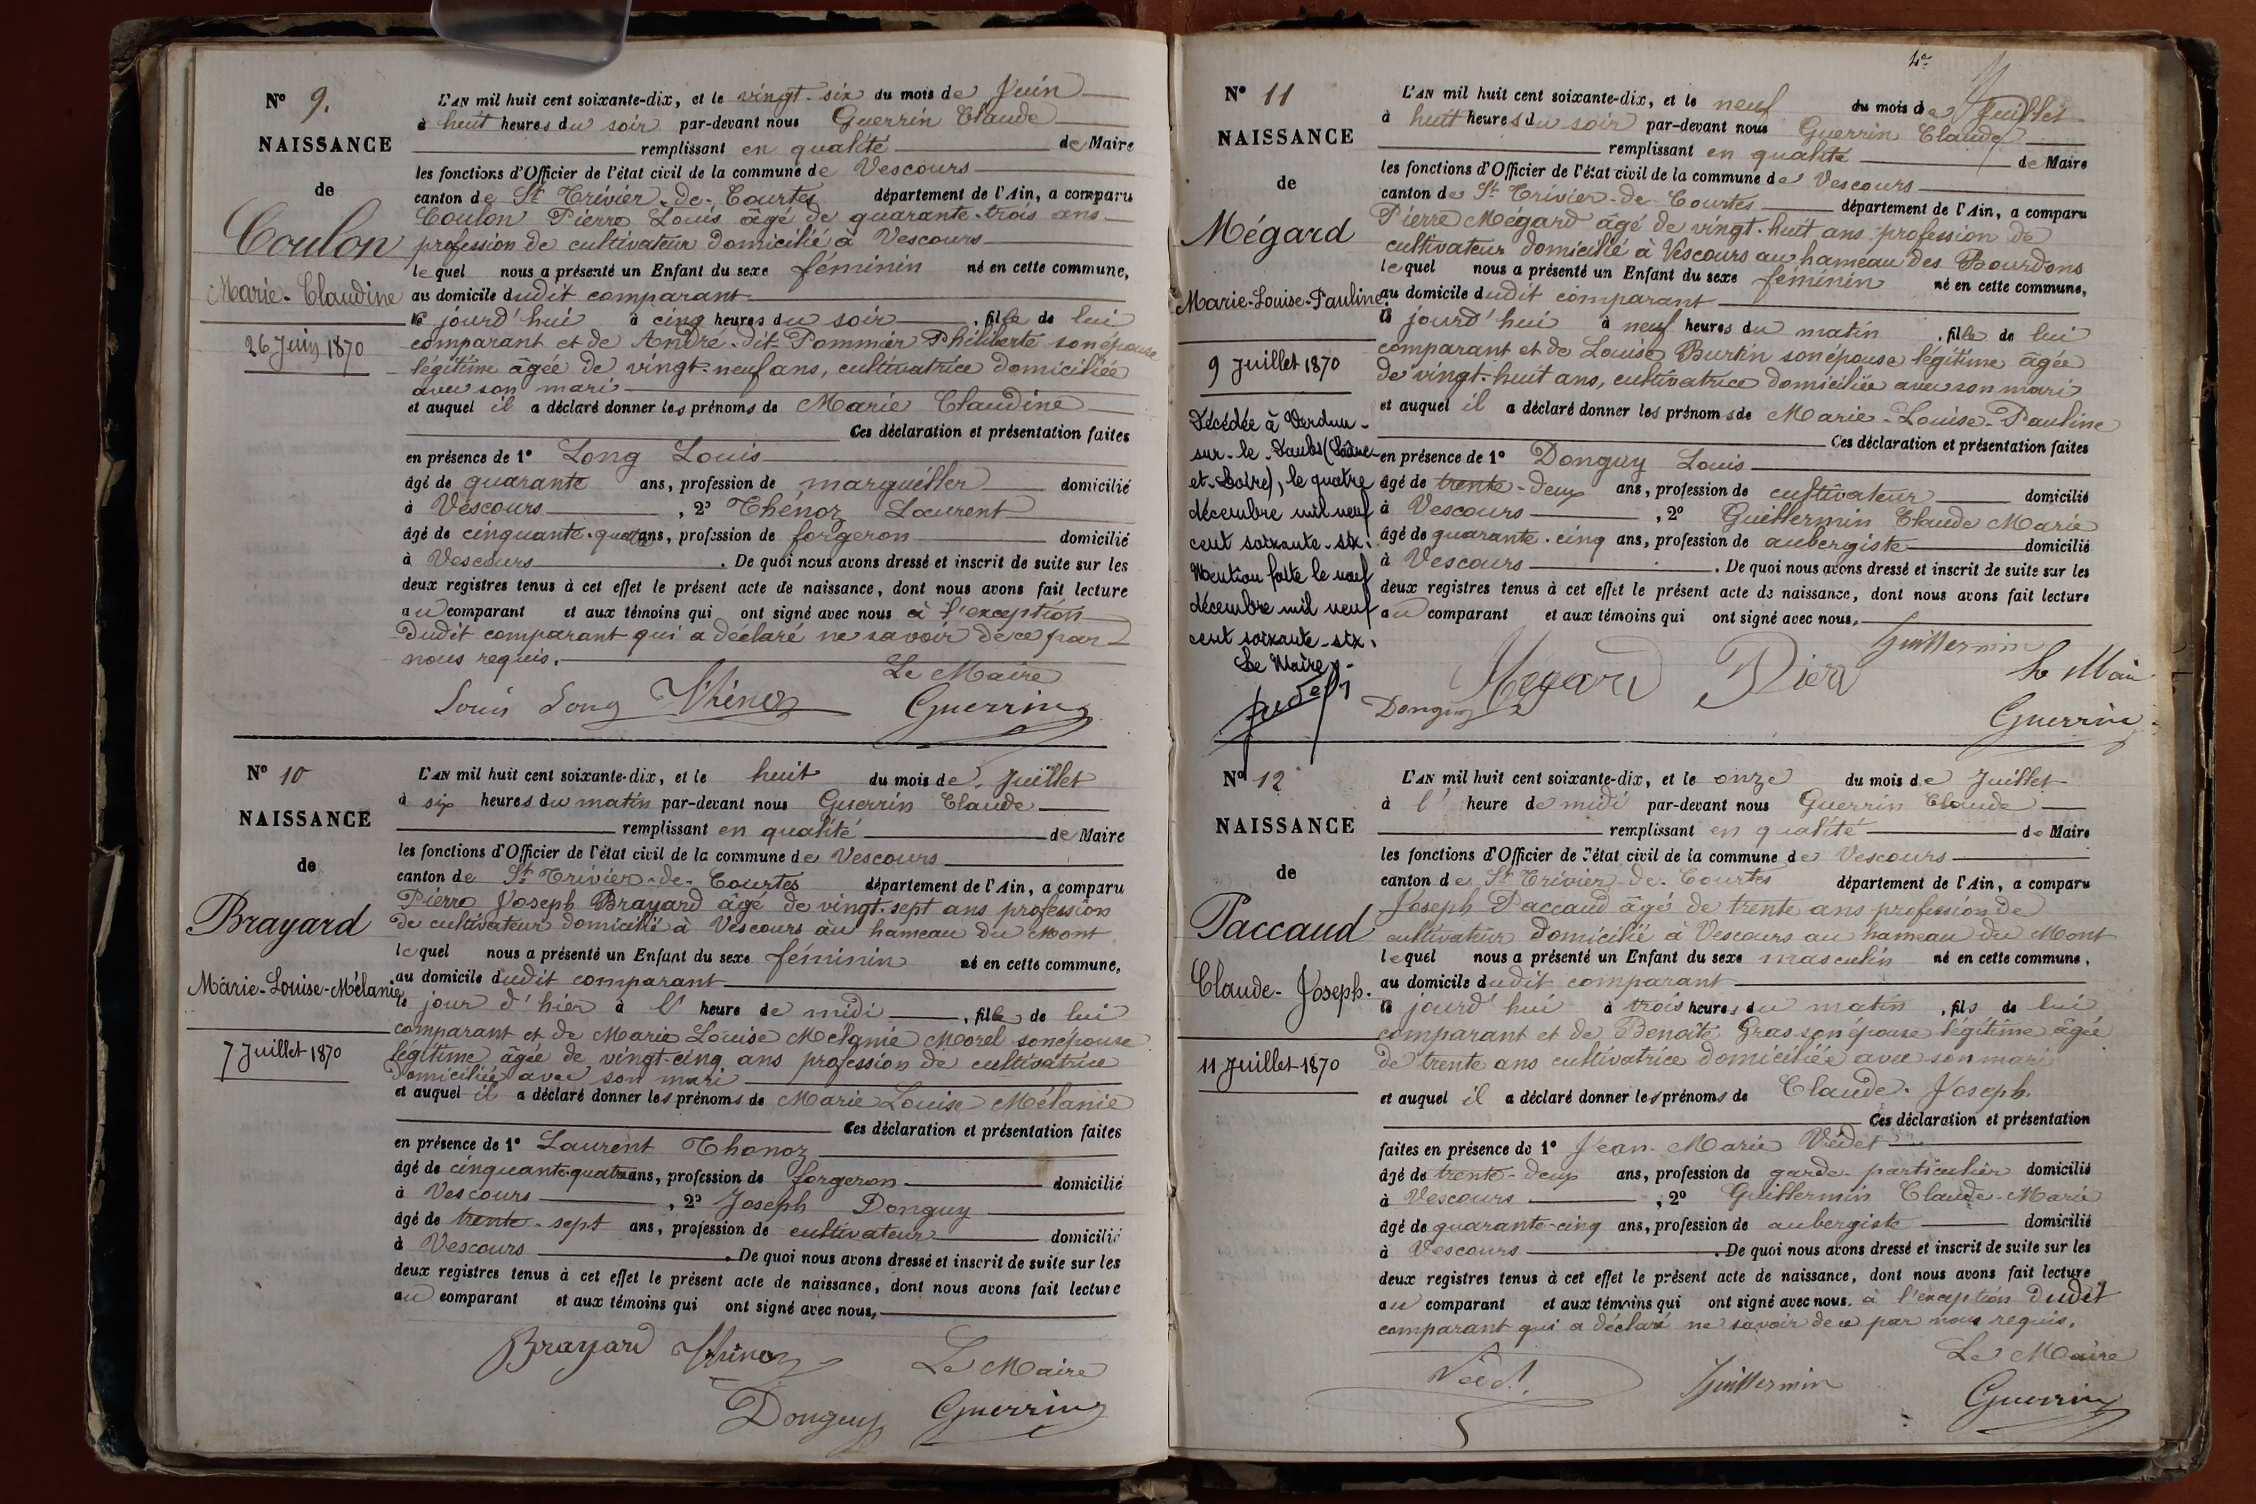 N° 9.
NAISSANCE
de
Coulon
Marie-Claudine
26 Juin 1870
L'AN mil huit cent soixante-dix, et le vingt-six du mois de Juin
à huit heures du soir par-devant nous Guerrin Claude
remplissant en qualité de Maire
les fonctions d'Officier de l'état civil de la commune de Vescours
canton de St Trivier-de-Courtes département de l'Ain, a comparu
Coulon Pierre Louis âgé de quarante-trois ans
profession de cultivateur domicilié à Vescours
lequel nous a présenté un Enfant du sexe féminin né en cette commune,
au domicile dudit comparant
le jourd'hui à cinq heures du soir, fille de lui
comparant et de André-dit-Pommier Philiberte son épouse
légitime âgée de vingt-neuf ans, cultivatrice domiciliée
avec son mari
et auquel il a déclaré donner les prénoms de Marie Claudine
Ces déclaration et présentation faites
en présence de 1° Long Louis
âgé de quarante ans, profession de marguiller domicilié
à Vescours, 2° Thénoz Laurent
âgé de cinquante-quatre ans, profession de forgeron domicilié
à Vescours. De quoi nous avons dressé et inscrit de suite sur les
deux registres tenus à cet effet le présent acte de naissance, dont nous avons fait lecture
au comparant et aux témoins qui ont signé avec nous à l'exception
dudit comparant qui a déclaré ne savoir de ce par
nous requis.
Le Maire
Louis Long Thénoz Guerrin
N° 10
NAISSANCE
de
Brayard
Marie-Louise-Mélanie
7 Juillet 1870
L'AN mil huit cent soixante-dix, et le huit du mois de Juillet
à six heures du matin par-devant nous Guerrin Claude
remplissant en qualité de Maire
les fonctions d'Officier de l'état civil de la commune de Vescours
canton de St Trivier-de-Courtes département de l'Ain, a comparu
Pierre Joseph Brayard âgé de vingt-sept ans profession
de cultivateur domicilié à Vescours au hameau du Mont
lequel nous a présenté un Enfant du sexe féminin né en cette commune,
au domicile dudit comparant
le jour d'hier à l' heure de midi, fille de lui
comparant et de Marie Louise Mélanie Morel son épouse
légitime âgée de vingt-cinq ans profession de cultivatrice
domiciliée avec son mari
et auquel il a déclaré donner les prénoms de Marie Louise Mélanie
Ces déclaration et présentation faites
en présence de 1° Laurent Thenoz
âgé de cinquante quatre ans, profession de forgeron domicilié
à Vescours, 2° Joseph Donguy
âgé de trente-sept ans, profession de cultivateur domicilié
à Vescours. De quoi nous avons dressé et inscrit de suite sur les
deux registres tenus à cet effet le présent acte de naissance, dont nous avons fait lecture
au comparant et aux témoins qui ont signé avec nous,
Brayard Thénoz Le Maire
Donguy Guerrin
4e
N° 11
NAISSANCE
de
Mégard
Marie-Louise-Pauline
9 Juillet 1870
Décédée à Verdun-
sur-le-Doubs (Saône-
et-Loire), le quatre
décembre mil neuf
cent soixante-six.
Mention faite le neuf
décembre mil neuf
cent soixante-six.
Le Maire,
L'AN mil huit cent soixante-dix, et le neuf du mois de Juillet
à huit heures du soir par-devant nous Guerrin Claude
remplissant en qualité de Maire
les fonctions d'Officier de l'état civil de la commune de Vescours
canton de St Trivier-de-Courtes département de l'Ain, a comparu
Pierre Mégard âgé de vingt-huit ans profession de
cultivateur domicilié à Vescours au hameau des Bourdons
lequel nous a présenté un Enfant du sexe féminin né en cette commune,
au domicile dudit comparant
le jourd'hui à neuf heures du matin, fille de lui
comparant et de Louise Burtin son épouse légitime âgée
de vingt-huit ans, cultivatrice domiciliée avec son mari
et auquel il a déclaré donner les prénoms de Marie-Louise-Pauline
Ces déclaration et présentation faites
en présence de 1° Donguy Louis
âgé de trente-deux ans, profession de cultivateur domicilié
à Vescours, 2° Guillermin Claude Marie
âgé de quarante-cinq ans, profession de aubergiste domicilié
à Vescours. De quoi nous avons dressé et inscrit de suite sur les
deux registres tenus à cet effet le présent acte de naissance, dont nous avons fait lecture
au comparant et aux témoins qui ont signé avec nous,
Guillermin
Megard Pierre Le Maire
Donguy Guerrin
N° 12
NAISSANCE
de
Paccaud
Claude-Joseph.
11 Juillet 1870
L'AN mil huit cent soixante-dix, et le onze du mois de Juillet
à l' heure de midi par-devant nous Guerrin Claude
remplissant en qualité de Maire
les fonctions d'Officier de l'état civil de la commune de Vescours
canton de St Trivier-de-Courtes département de l'Ain, a comparu
Joseph Paccaud âgé de trente ans profession de
cultivateur domicilié à Vescours au hameau du Mont
lequel nous a présenté un Enfant du sexe masculin né en cette commune,
au domicile dudit comparant
le jourd'hui à trois heures du matin, fils de lui
comparant et de Benoîte Gras son épouse légitime âgée
de trente ans cultivatrice domiciliée avec son mari
et auquel il a déclaré donner les prénoms de Claude-Joseph.
Ces déclaration et présentation
faites en présence de 1° Jean-Marie Védet
âgé de trente-deux ans, profession de garde-particulier domicilié
à Vescours, 2° Guillermin Claude-Marie
âgé de quarante-cinq ans, profession de aubergiste domicilié
à Vescours. De quoi nous avons dressé et inscrit de suite sur les
deux registres tenus à cet effet le présent acte de naissance, dont nous avons fait lecture
au comparant et aux témoins qui ont signé avec nous. à l'exception dudit
comparant qui a déclaré ne savoir de ce par nous requis.
Le Maire
Guillermin Guerrin